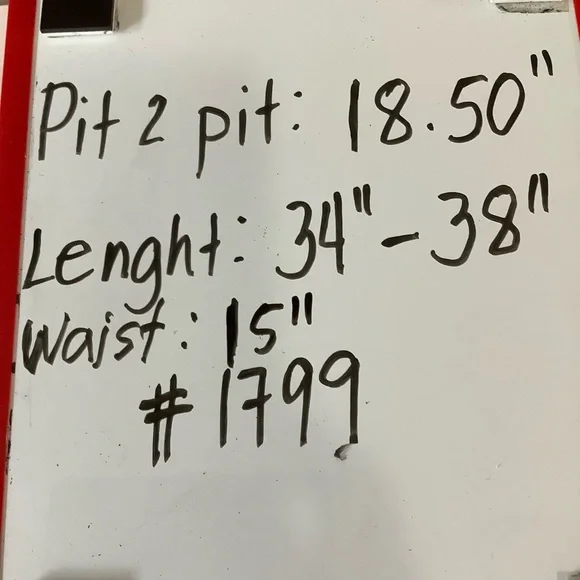 Pit 2 pit: 18.50"
Lenght: 34"-38"
Waist: 15"
#1799